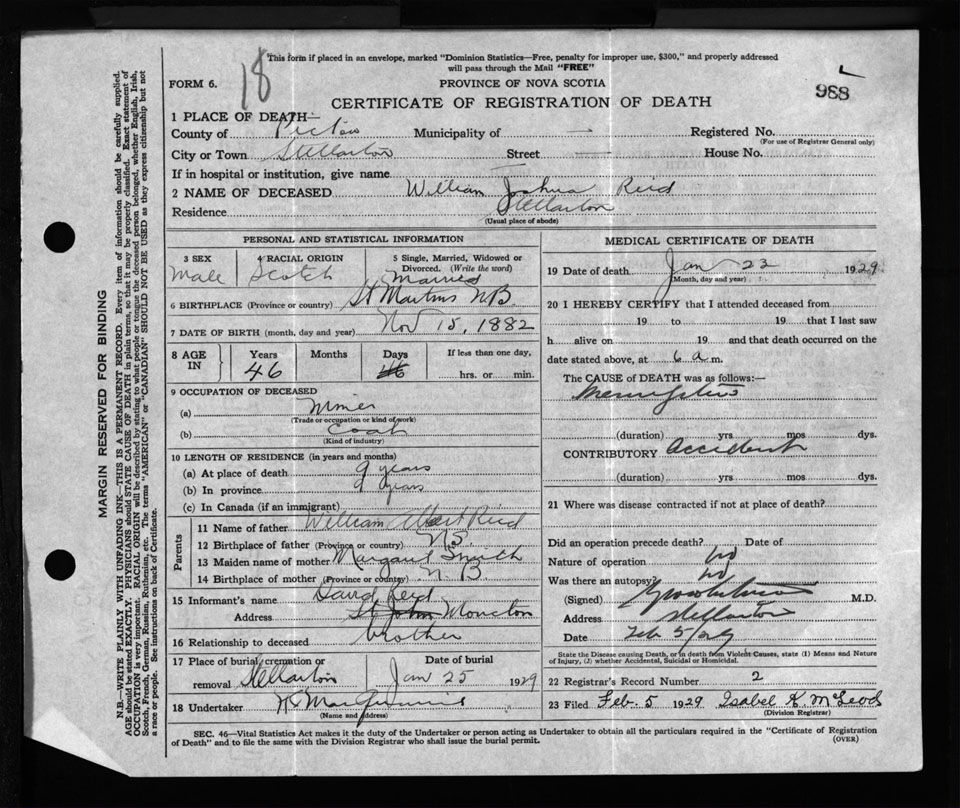 This form if placed in an envelope, marked "Dominion Statistics—Free, penalty for improper use, $300," and properly addressed
will pass through the Mail "FREE"
18
988
FORM 6.
PROVINCE OF NOVA SCOTIA
CERTIFICATE OF REGISTRATION OF DEATH
1 PLACE OF DEATH—
County of Pictou Municipality of — Registered No.
(For use of Registrar General only)
City or Town Stellarton Street — House No.
If in hospital or institution, give name
2 NAME OF DECEASED William Joshua Reid
Residence Stellarton
(Usual place of abode)
PERSONAL AND STATISTICAL INFORMATION
3 SEX Male
4 RACIAL ORIGIN Scotch
5 Single, Married, Widowed or Divorced. (Write the word) Married
6 BIRTHPLACE (Province or country) St Martins N.B.
7 DATE OF BIRTH (month, day and year) Nov 15, 1882
8 AGE IN Years 46 Months Days 46 If less than one day, hrs. or min.
9 OCCUPATION OF DECEASED
(a) Miner
(Trade or occupation or kind of work)
(b) Coal
(Kind of industry)
10 LENGTH OF RESIDENCE (in years and months)
(a) At place of death 9 years
(b) In province 9 years
(c) In Canada (if an immigrant)
Parents
11 Name of father William Albert Reid
12 Birthplace of father (Province or country) N.S.
13 Maiden name of mother Margaret Smith
14 Birthplace of mother (Province or country) N.B
15 Informant's name David Reid
Address St John Moncton
16 Relationship to deceased brother
17 Place of burial, cremation or removal Stellarton Date of burial Jan 25 1929
18 Undertaker
(Name and address)
MEDICAL CERTIFICATE OF DEATH
19 Date of death Jan 23 1929
(Month, day and year)
20 I HEREBY CERTIFY that I attended deceased from
19 to 19 that I last saw
h alive on 19 and that death occurred on the
date stated above, at 6 a m.
The CAUSE of DEATH was as follows:—
(duration) yrs mos dys.
CONTRIBUTORY Accident
(duration) yrs mos dys.
21 Where was disease contracted if not at place of death?
Did an operation precede death? Date of
Nature of operation no
Was there an autopsy? no
(Signed) M.D.
Address Stellarton
Date Feb 5/29
State the Disease causing Death, or in death from Violent Causes, state (1) Means and Nature
of Injury, (2) whether Accidental, Suicidal or Homicidal.
22 Registrar's Record Number 2
23 Filed Feb. 5 1929 Isabel K. McLeod
(Division Registrar)
SEC. 46—Vital Statistics Act makes it the duty of the Undertaker or person acting as Undertaker to obtain all the particulars required in the "Certificate of Registration
of Death" and to file the same with the Division Registrar who shall issue the burial permit.
(OVER)
MARGIN RESERVED FOR BINDING
N.B.—WRITE PLAINLY WITH UNFADING INK—THIS IS A PERMANENT RECORD. Every item of information should be carefully supplied.
AGE should be stated EXACTLY. PHYSICIANS should STATE CAUSE OF DEATH in plain terms, so that it may be properly classified. Exact statement of
OCCUPATION is very important. RACIAL ORIGIN will be described by stating to what people or tongue the deceased person belonged, whether English, Irish,
Scotch, French, German, Russian, Ruthenian, etc. The terms "AMERICAN" or "CANADIAN" SHOULD NOT BE USED as they express citizenship but not
a race or people. See instructions on back of Certificate.